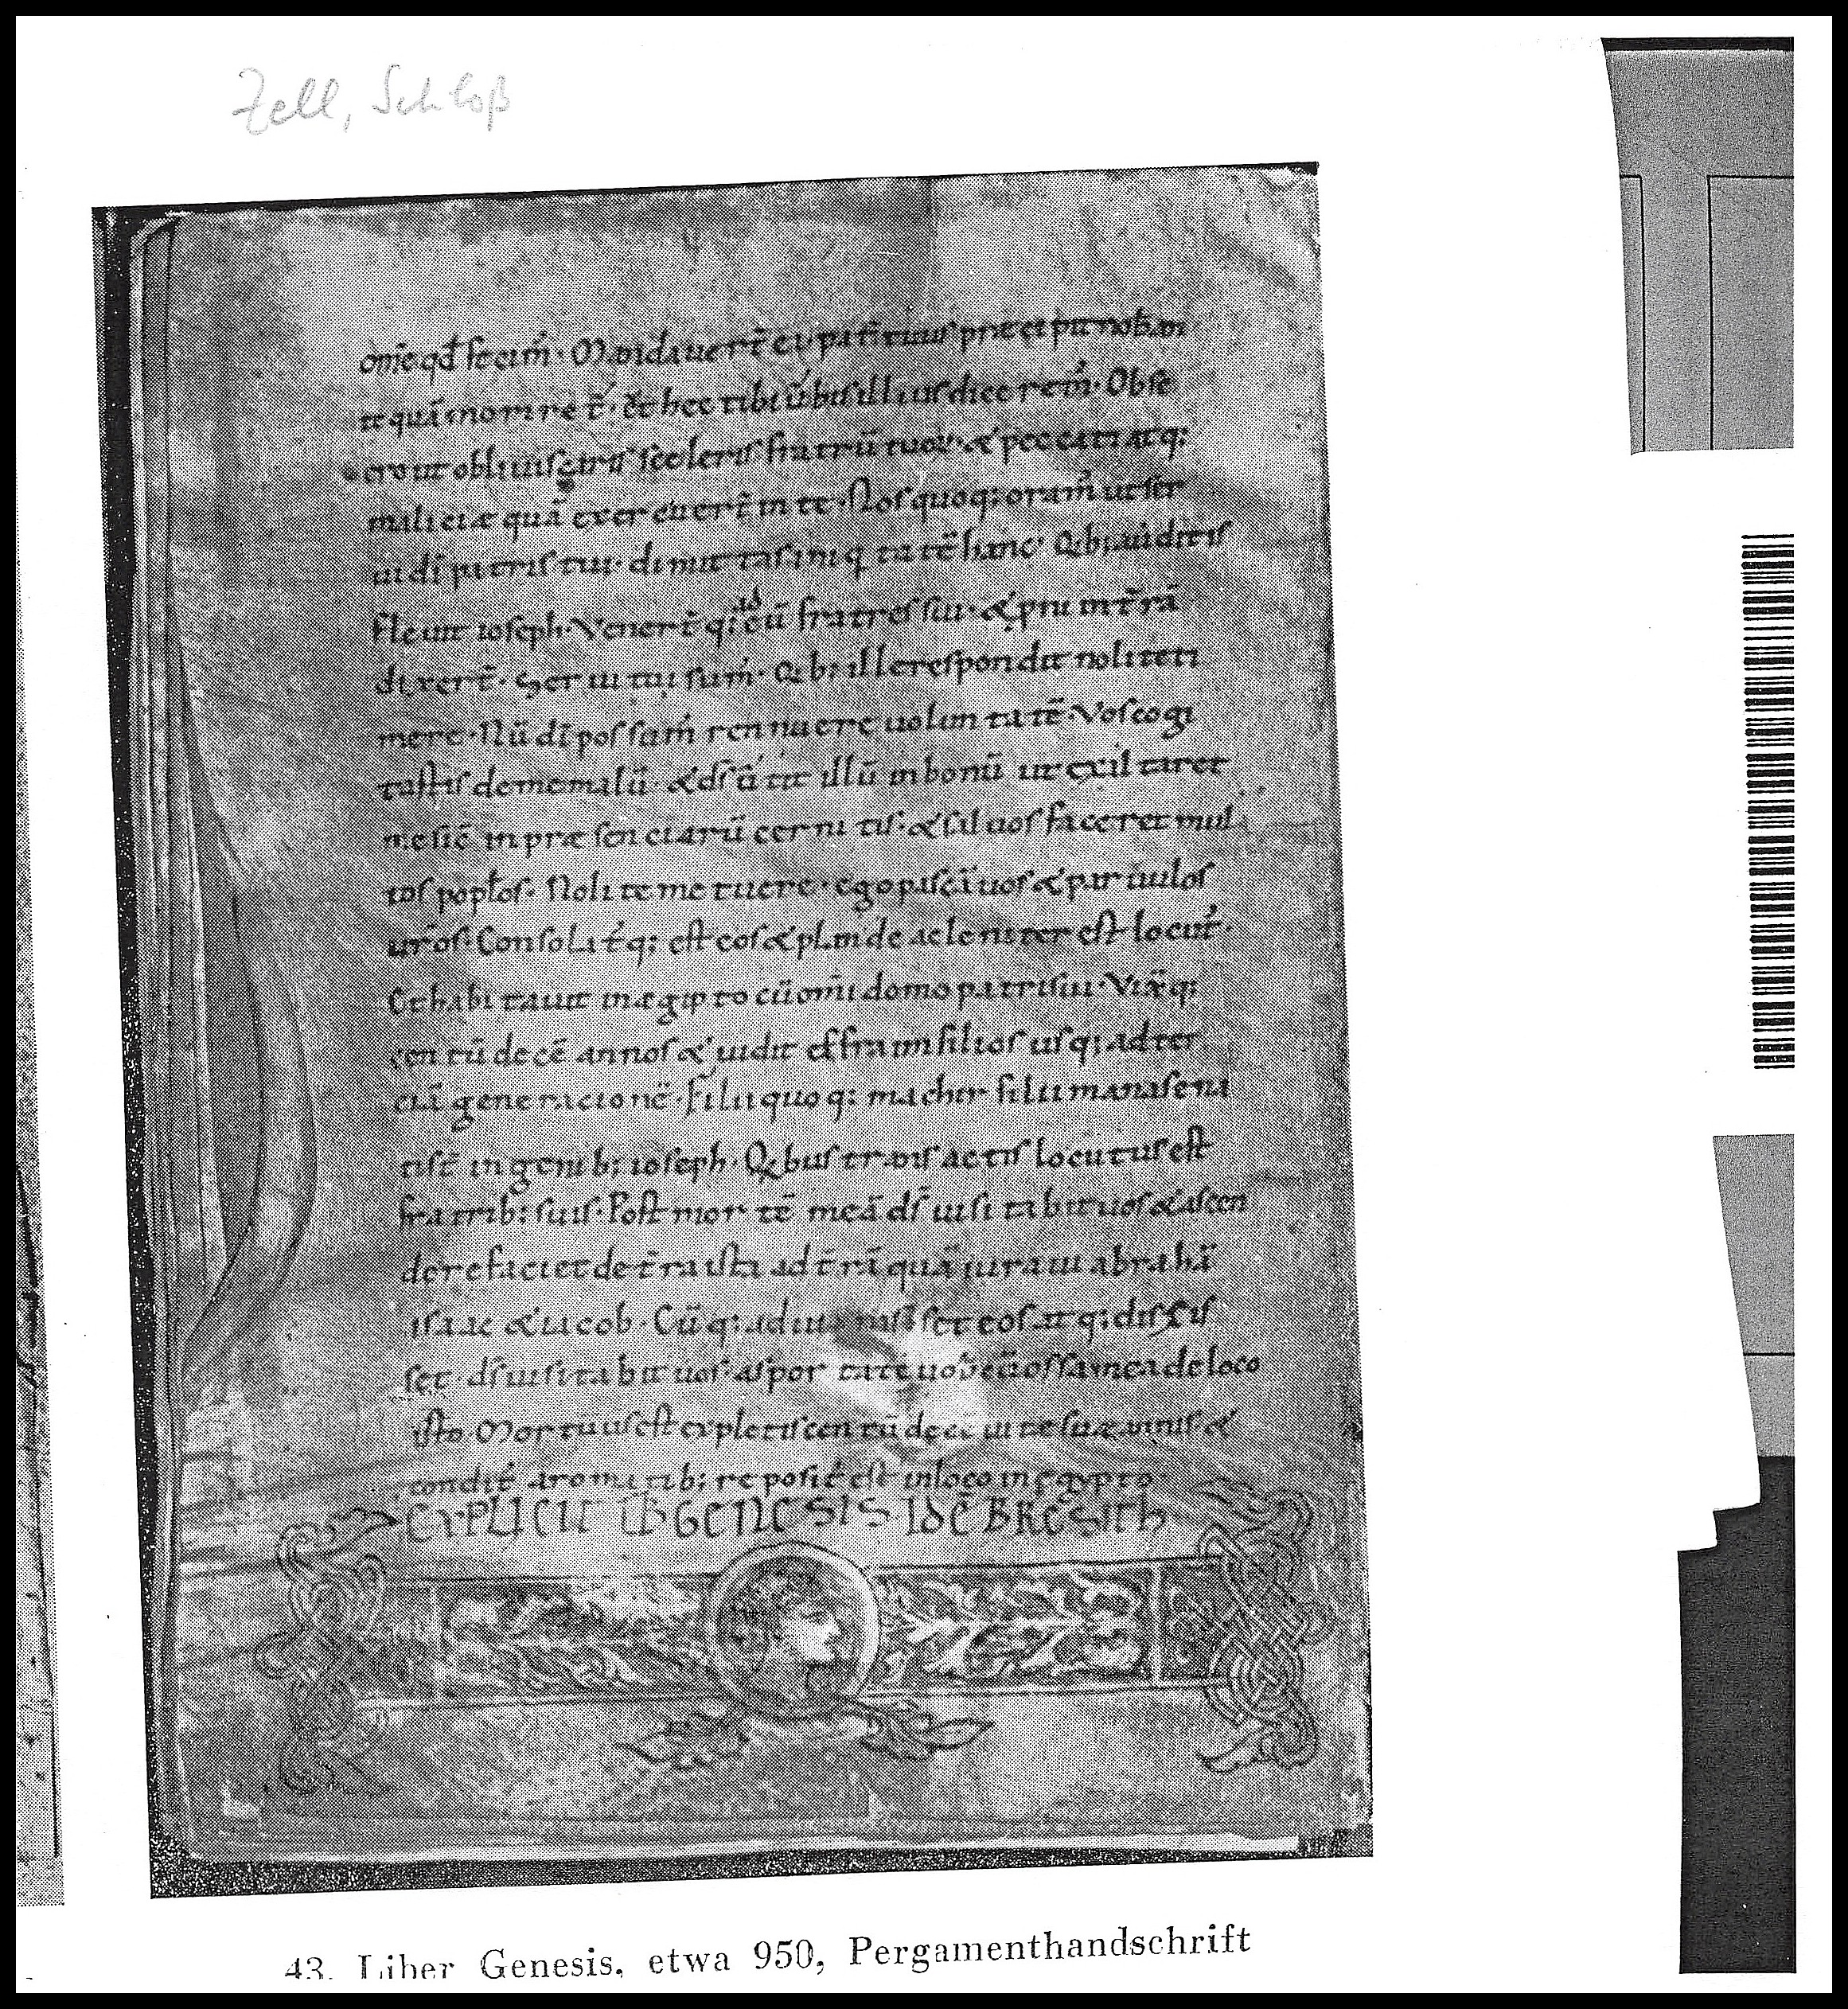 Zell, Schloß
om̄e qd̄ fecim̄. Mandauert̄ ei. pat̄ tuus præcepit nob̄ an
te quā morire t̄. ēt hec tibi ū bis illius dicerem̄. Obse
cro ut obliuiscaris sceleris fratrū tuoꝝ. & peccati atq;
maliciæ quā exercuert̄ in te. Nos quoq; oram̄ ut ser
ui dī patris tui. dimittas iniq tatē hanc. Qib; auditis
fleuit ioseph. Venert̄ q; ad eū fratres sui. & pni in t̄rā
dixert̄. Serui tui sum̄. Qib; ille respondit nolite ti
mere. Nū dī possum̄ rennuere uoluntatē. Vos cogi
tastis de me malū. & ds̄ ūtit illū in bonū ut exaltaret
me sic̄ in præsenciarū cernitis: & saluos faceret mul
tos poplos. Nolite metuere. ego pascā uos & paruulos
ur̄os. Consolat̄q; est eos & blande ac leniter est locut̄.
Et habitauit in ægipto cū om̄i domo patris sui. Vixitq;
centū decē annos & uidit effraim filios usq; ad ter
ciā generacionē. Filii quoq; machir filii manase na
ti st̄ in genib; ioseph. Qibus transactis locutus est
fratrib; suis. Post mortē meā ds̄ uisitabit uos & ascen
dere faciet de t̄ra ista ad t̄rā quā iurauit abrahā
isaac & iacob. Cūq; adiurasset eos atq; dixis
set. ds̄ uisitabit uos. asportate uobcū ossa mea de loco
isto. Mortuus est expletis centū decē uitæ suæ annis &
condit̄ aromatib; reposit̄ est in loco in egypto.
EXPLICIT LIB̄ GENESIS. IDĒ BRESITH
43. Liber Genesis, etwa 950, Pergamenthandschrift